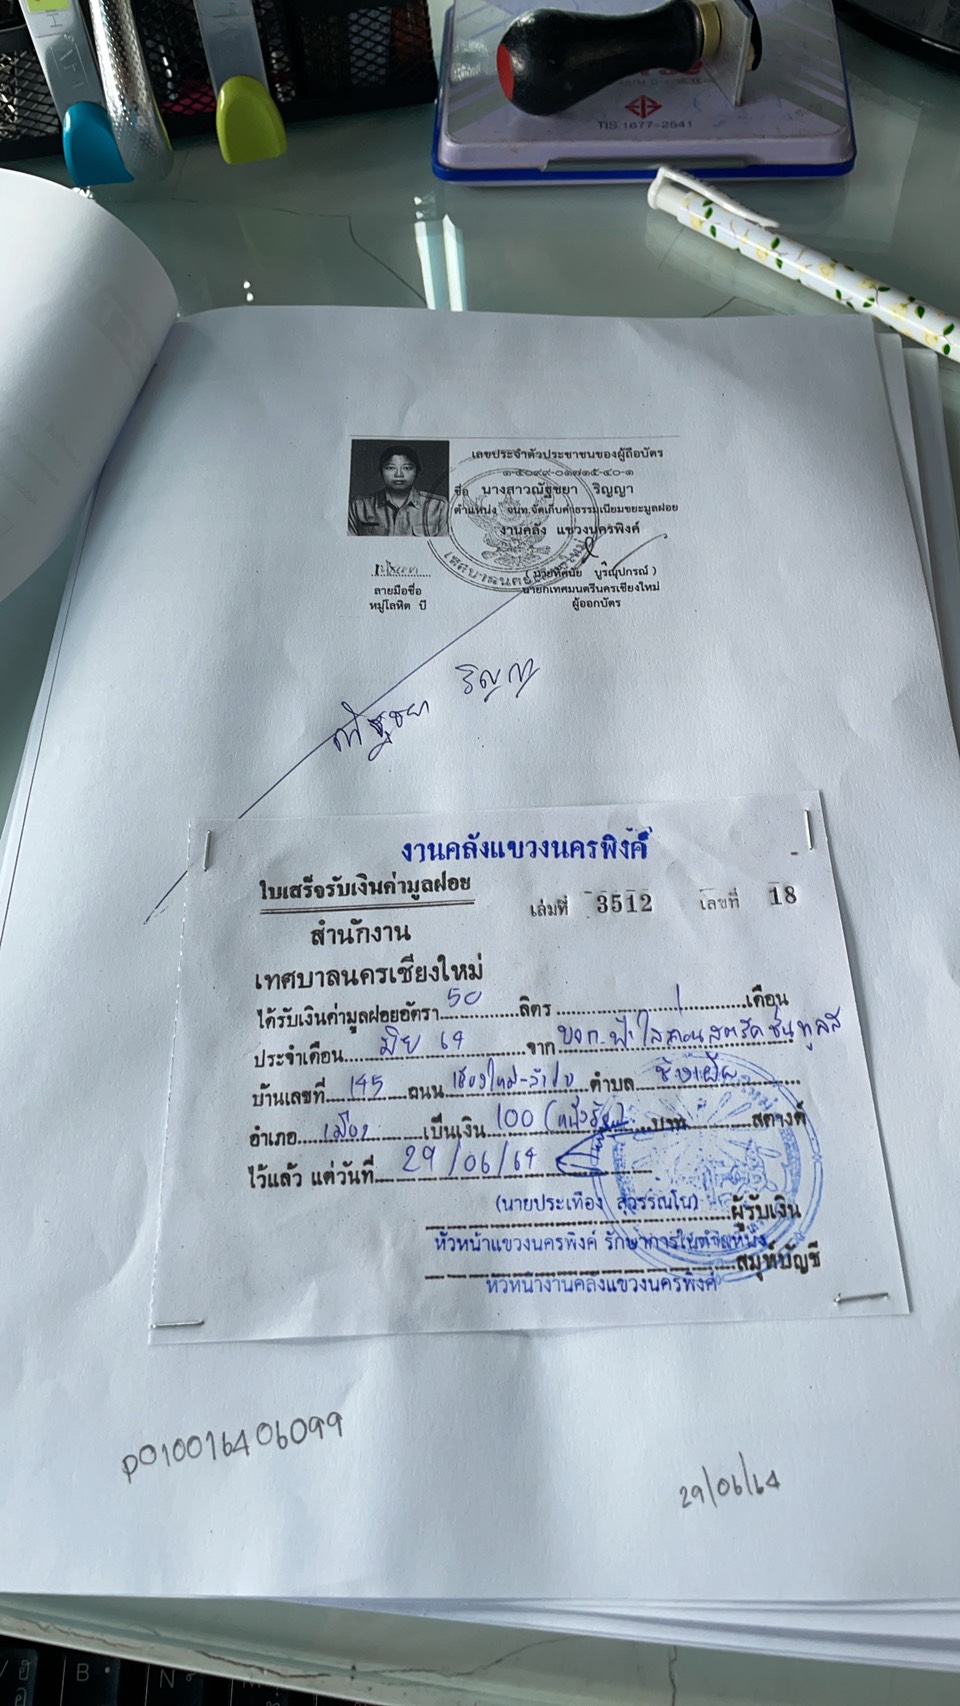 TIS 1677-2541
เลขประจำตัวประชาชนของผู้ถือบัตร
๑-๕๐๙๙-๐๑๗๑๕-๔๐-๑
ชื่อ นางสาวณัฐชยา ริญญา
ตำแหน่ง จนท.จัดเก็บค่าธรรมเนียมขยะมูลฝอย
งานคลัง แขวงนครพิงค์
ลายมือชื่อ
หมู่โลหิต บี
(นายทัศนัย บูรณุปกรณ์)
นายกเทศมนตรีนครเชียงใหม่
ผู้ออกบัตร
ณัฐชยา ริญญา
งานคลังแขวงนครพิงค์
ใบเสร็จรับเงินค่ามูลฝอย
เล่มที่ 3512 เลขที่ 18
สำนักงาน
เทศบาลนครเชียงใหม่
ได้รับเงินค่ามูลฝอยอัตรา 50 ลิตร 1 เดือน
ประจำเดือน มิย 64 จาก หจก.ฟ้าใสคอนสตรัคชั่น
บ้านเลขที่ 145 ถนน เชียงใหม่-ลำปาง ตำบล ช้างเผือก
อำเภอ เมือง เป็นเงิน 100 (หนึ่งร้อย) บาท สตางค์
ไว้แล้ว แต่วันที่ 29/06/64
(นายประเทือง สุวรรณโน) ผู้รับเงิน
หัวหน้าแขวงนครพิงค์ รักษาการในตำแหน่ง
สมุห์บัญชี
หัวหน้างานคลังแขวงนครพิงค์
P010016406099
29/06/64
B
N